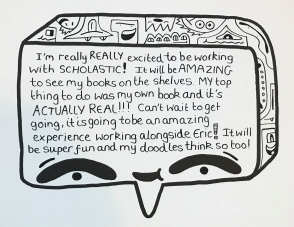 I'm really REALLY excited to be working
with SCHOLASTIC! It will be AMAZING
to see my books on the shelves. MY top
thing to do was my own book and it's
ACTUALLY REAL!!! Can't wait to get
going, it is going to be an amazing
experience working alongside Eric!! It will
be super fun and my doodles think so too!